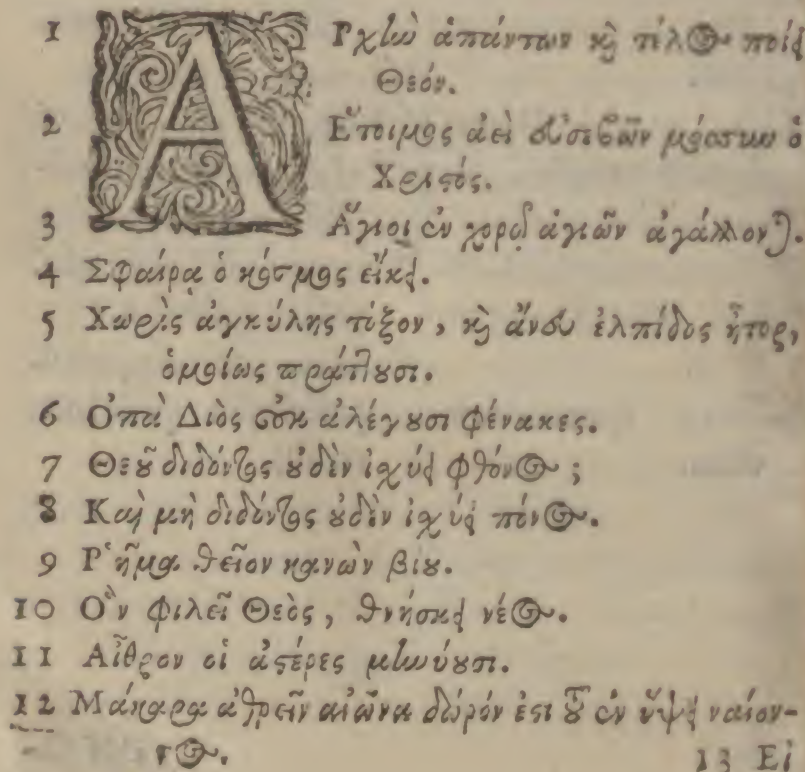 1 ΑΡχὴν ἁπάντων καὶ τέλος ποίει
Θεόν.
2 Ἕτοιμος ἀεὶ εὐσεβῶν μάρτυς ὁ
Χριστός.
3 Ἅγιοι ἐν χορῷ ἁγιῶν ἀγάλλονται.
4 Σφαίρᾳ ὁ κόσμος εἴκει.
5 Χωρὶς ἀγκύλης τόξον, καὶ ἄνευ ἐλπίδος ἦτορ,
ὁμοίως πράττουσι.
6 Ὀπὰ Διὸς οὐκ ἀλέγουσι φένακες.
7 Θεοῦ διδόντος οὐδὲν ἰσχύει φθόνος;
8 Καὶ μὴ διδόντος οὐδὲν ἰσχύει πόνος.
9 Ῥῆμα θεῖον κανὼν βίου.
10 Ὃν φιλεῖ Θεὸς, θνήσκει νέος.
11 Αἶθρον οἱ ἀστέρες μηνύουσι.
12 Μάκαρα ἀθρεῖν αἰῶνα δῶρόν ἐστι τοῦ ἐν ὕψει ναίον-
τος. 13 Εἰ